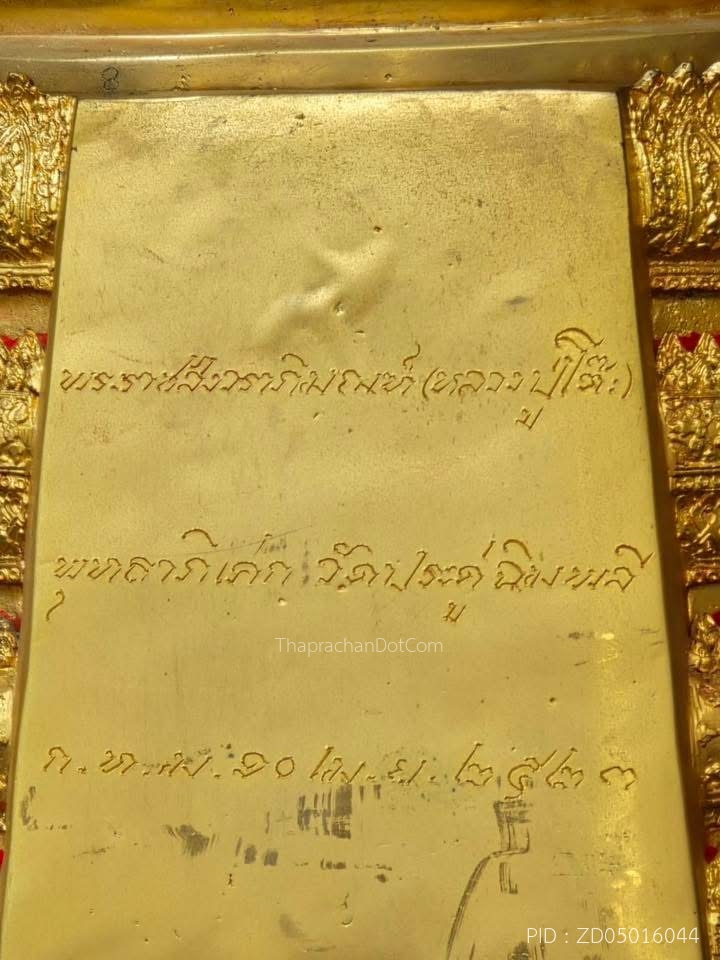 พระราชสังวราภิมณฑ์ (หลวงปู่โต๊ะ)
พุทธาภิเศก วัดประดู่ฉิมพลี
ThaprachanDotCom
ก.ท.ม. ๑๐ เม.ย. ๒๕๒๓
PID : ZD05016044